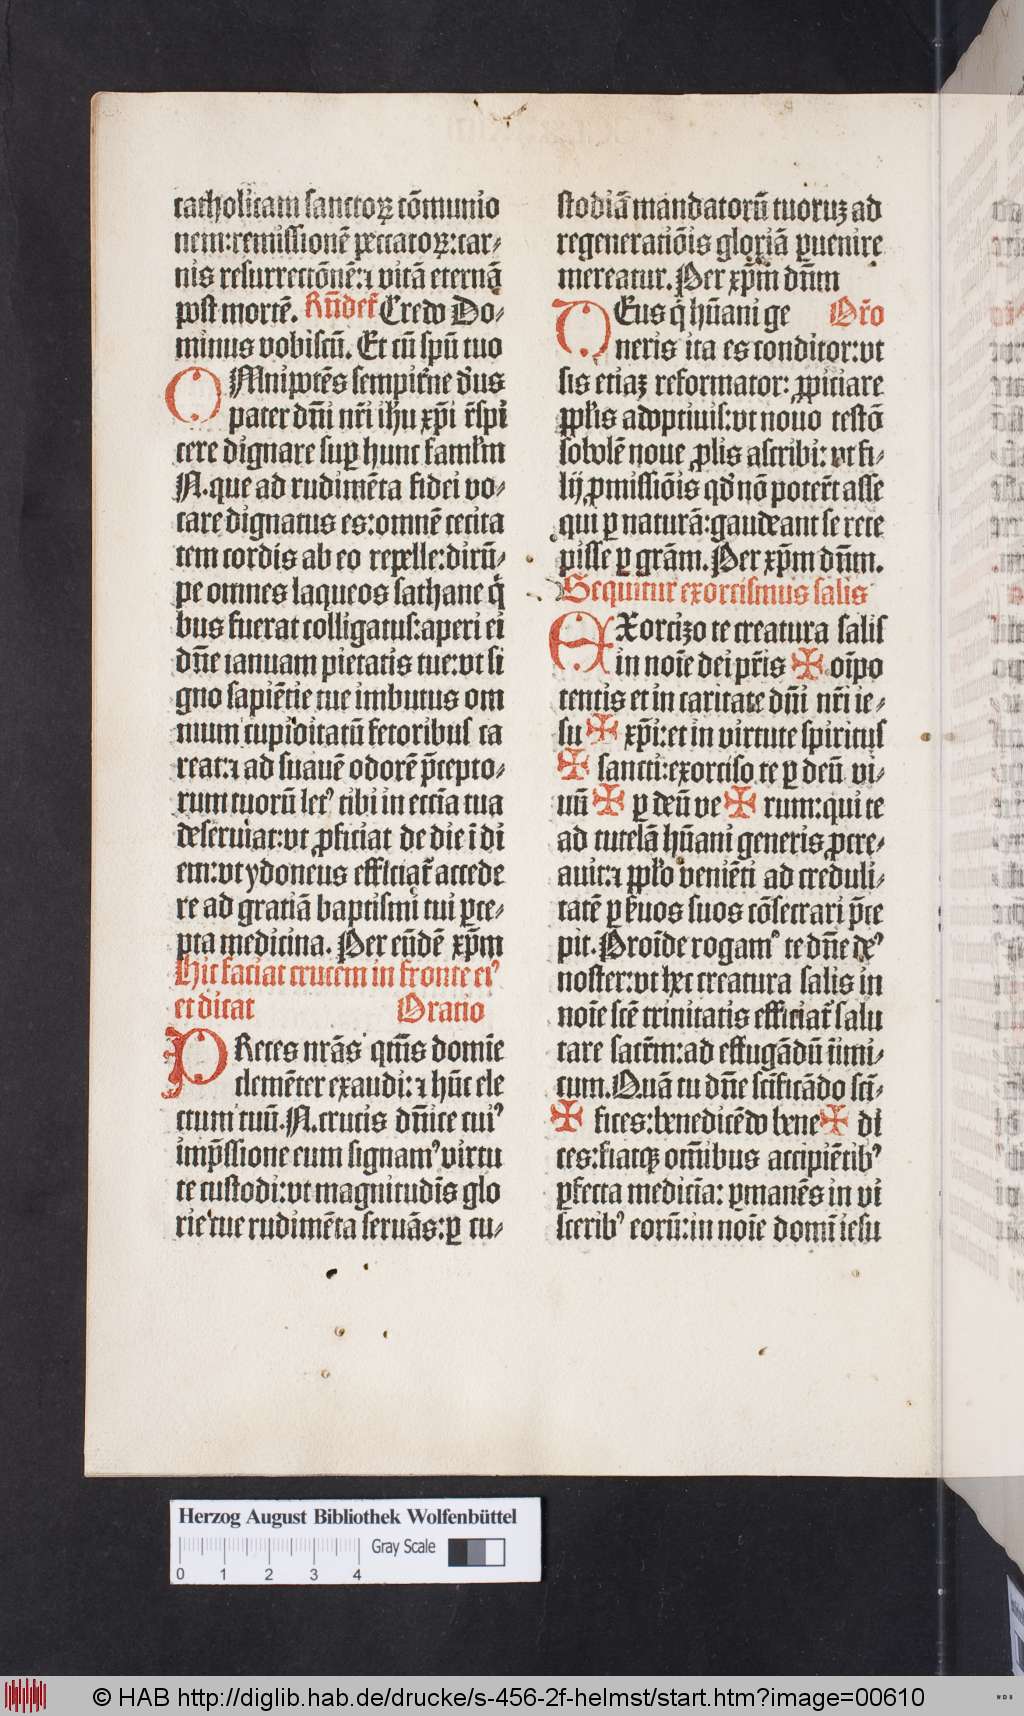 catholicam sanctoꝝ cōmunio
nem:remissionē peccatoꝝ:car⸗
nis resurrectōnē:⁊ vitā eternā
post mortē. Rn̄def̄ Credo Do⸗
minus vobiscū. Et cū spū tuo
OMnipotēs sempit̄ne de᷒us
pater dn̄i nr̄i ih̄u xp̄i r̄spi
cere dignare suꝑ hunc famłm
N. que ad rudimēta fidei vo⸗
care dignatus es:omnē cecita
tem cordis ab eo repelle:dirū⸗
pe omnes laqueos sathane q̇
bus fuerat colligatus:aperi ei
dn̄e ianuam pietatis tue:vt si
gno sapiētie tue imbutus om
nium cupiditatū fetoribus ca
reat:⁊ ad suauē odorē p̄cepto⸗
rum tuorū letꝰ tibi in eccīa tua
deseruiat:vt ꝓficiat de die ī di
em:vt ydoneus efficiat̄ accede
re ad gratiā baptismi tui ꝑce⸗
pta medicina. Per eūdē xp̄m
Hic faciat crucem in fronte eiꝰ
et dicat Oratio
PReces nrās qm̄s domīe
clemēter exaudi:⁊ hūc ele
ctum tuū. N. crucis dn̄ice cuiꝰ
imp̄ssione eum signamꝰ virtu
te custodi:vt magnitudīs glo
rie tue rudimēta seruās:ꝑ cu⸗
stodiā mandatorū tuoruꝫ ad
regeneratiōis gloriā ꝑuenire
mereatur. Per xp̄m dn̄m
DEus q̇ hūani ge Or̄o
neris ita es conditor:vt
sis etiaꝫ reformator:ꝓpiciare
ppłis adoptiuis:vt nouo testō
sobolē noue ꝓlis ascribi:vt fi⸗
lij ꝓmissiōis qd̄ nō poter̄t asse
qui ꝑ naturā:gaudeant se rece
pisse ꝑ grām. Per xp̄m dn̄m.
Sequitur exorcismus salis
EXorcizo te creatura salis
in noīe dei pr̄is ✠ oīpo
tentis et in caritate dn̄i nr̄i ie⸗
su ✠ xp̄i:et in virtute spiritus
✠ sancti:exorciso te ꝑ deū vi⸗
uū ✠ ꝑ deū ve ✠ rum:qui te
ad tutelā hūani generis ꝓcre⸗
auit:⁊ ppło veniēti ad creduli⸗
tatē ꝑ s̄uos suos cōsecrari p̄ce
pit. Proīde rogamꝰ te dn̄e deꝰ
noster:vt hec creatura salis in
noīe scē trinitatis efficiat̄ salu
tare sacr̄m:ad effugādū inīmi⸗
cum. Quā tu dn̄e scīficādo scī⸗
✠ fices:benedicēdo bene ✠ di
ces:fiatqꝫ om̄ibus accipiētibꝰ
ꝑfecta medicīa: ꝑmanēs in vi
scerib᷒ eorū:in noīe domī iesu
Herzog August Bibliothek Wolfenbüttel
0 1 2 3 4 Gray Scale
© HAB http://diglib.hab.de/drucke/s-456-2f-helmst/start.htm?image=00610